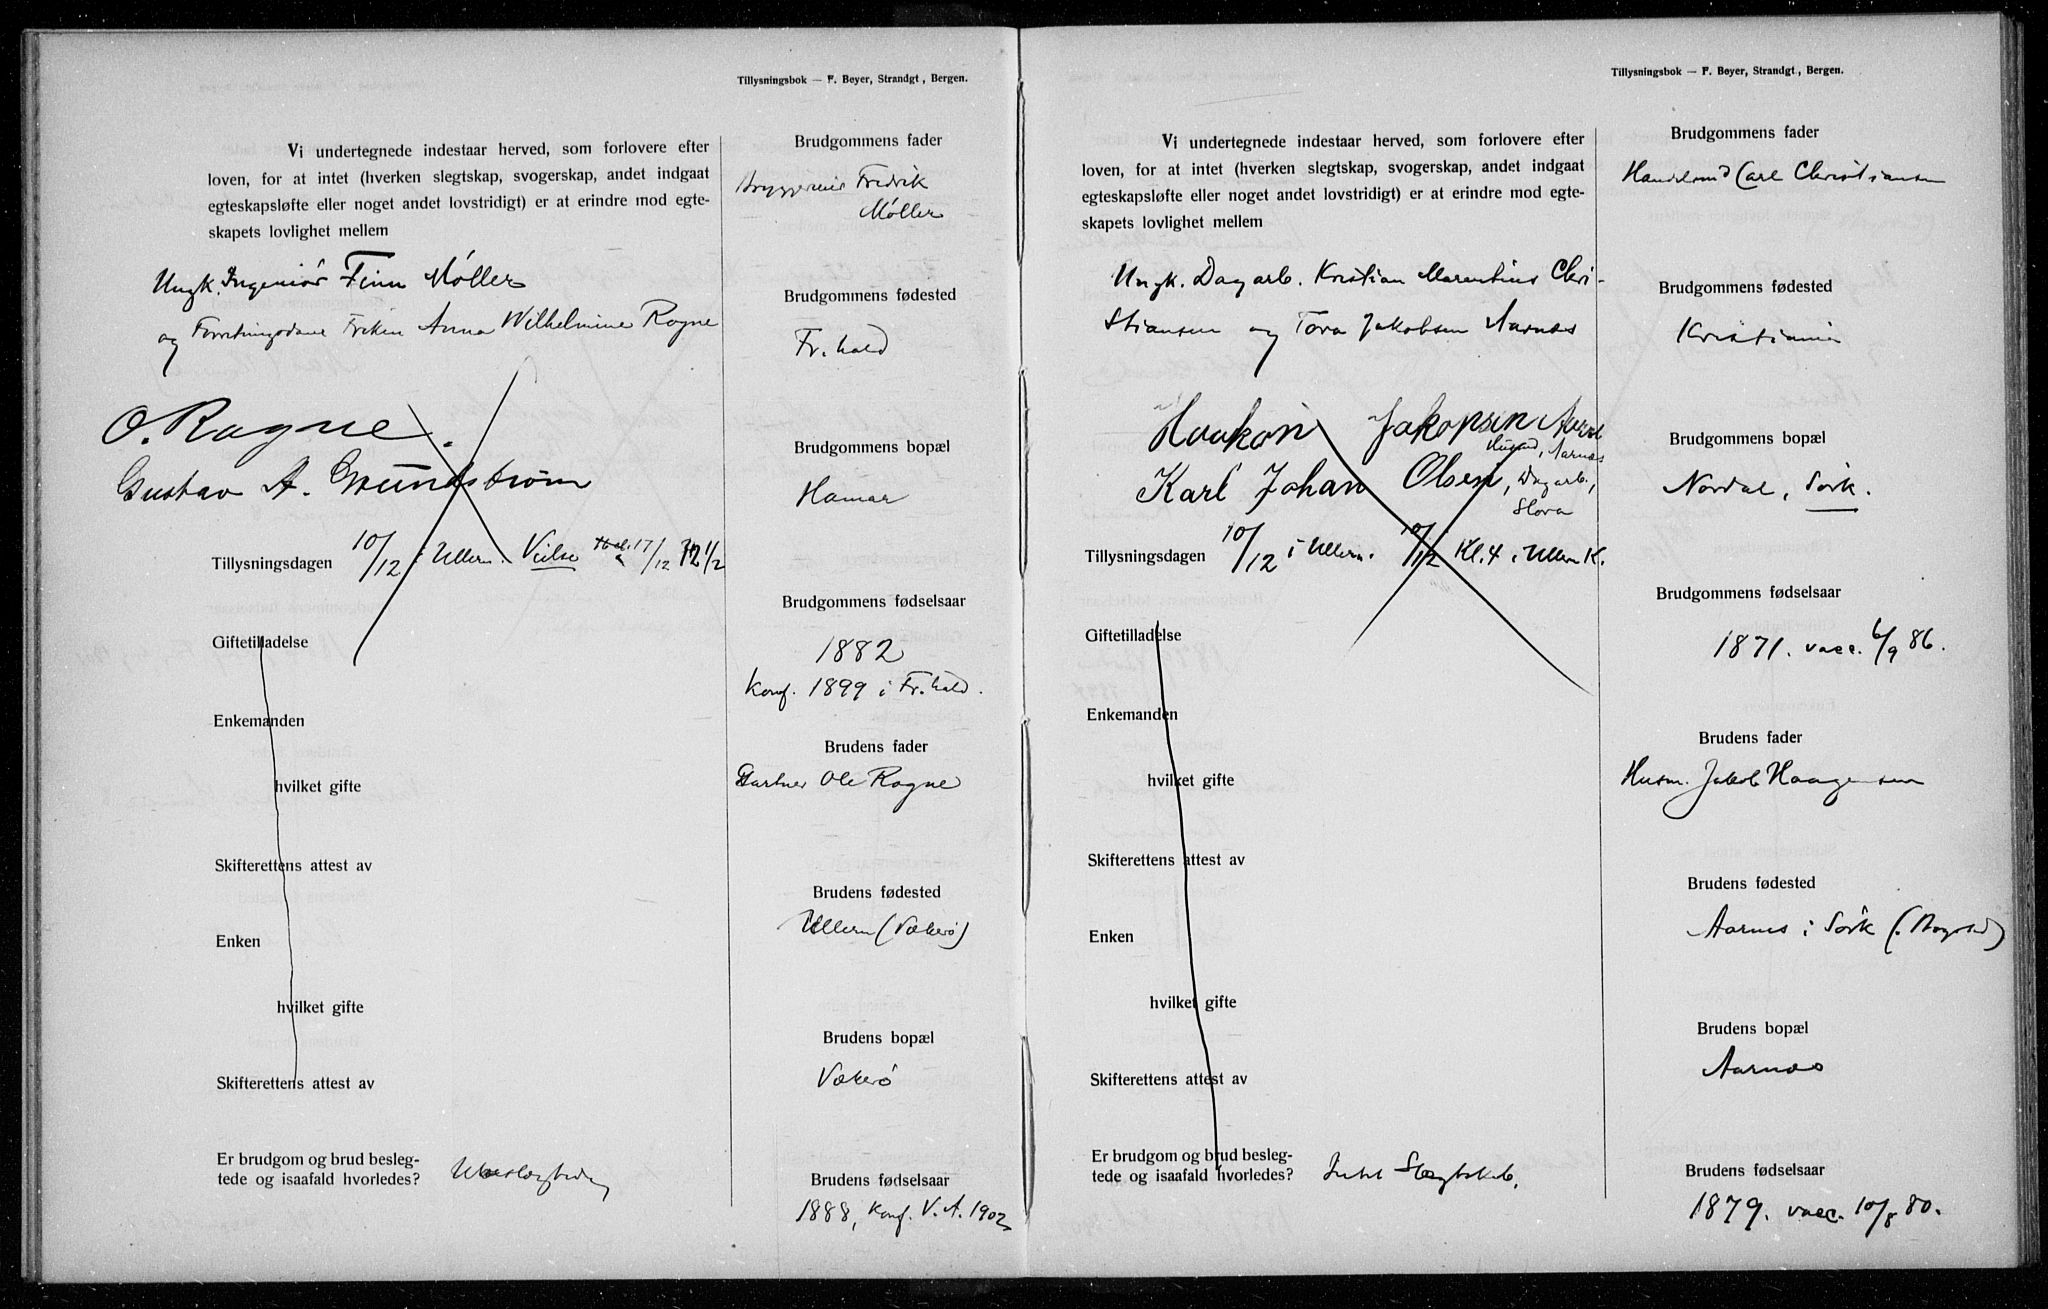 Tillysningsbok — F. Beyer, Strandgt, Bergen.
Vi undertegnede indestaar herved, som forlovere efter
loven, for at intet (hverken slegtskap, svogerskap, andet indgaat
egteskapsløfte eller noget andet lovstridigt) er at erindre mod egte-
skapets lovlighet mellem
Ungk. Ingeniør Finn Møller
og Forretningsdame Frøken Anna Wilhelmine Rogne
O. Rogne.
Gustav A. Grundstrøm
Tillysningsdagen 10/12 i Ullern. Vielse 17/12 12 1/2
Giftetilladelse
Enkemanden
hvilket gifte
Skifterettens attest av
Enken
hvilket gifte
Skifterettens attest av
Er brudgom og brud besleg-
tede og isaafald hvorledes? Ubeslegtede
Brudgommens fader
Fredrik
Møller
Brudgommens fødested
Fr.hald
Brudgommens bopæl
Hamar
Brudgommens fødselsaar
1882
Konf. 1899 i Fr.hald.
Brudens fader
Gartner Ole Rogne
Brudens fødested
Ullern (Vækerø)
Brudens bopæl
Vækerø
Brudens fødselsaar
1888, Konf. V. A. 1902
Tillysningsbok — F. Beyer, Strandgt, Bergen.
Vi undertegnede indestaar herved, som forlovere efter
loven, for at intet (hverken slegtskap, svogerskap, andet indgaat
egteskapsløfte eller noget andet lovstridigt) er at erindre mod egte-
skapets lovlighet mellem
Ungk. Dagarb. Kristian Marentius Chri-
stiansen og Tora Jakobsen Aarnæs
Haakon Jakopsen
Aarnæs
Karl Johan Olsen, Dagarb.,
Tillysningsdagen 10/12 i Ullern. 10/12 Kl. 4 i Ullern K.
Giftetilladelse
Enkemanden
hvilket gifte
Skifterettens attest av
Enken
hvilket gifte
Skifterettens attest av
Er brudgom og brud besleg-
tede og isaafald hvorledes? Intet Slægtskab.
Brudgommens fader
Handelsmd Carl Christiansen
Brudgommens fødested
Kristiania
Brudgommens bopæl
Nordal, Sørk.
Brudgommens fødselsaar
1871. vacc. 6/9 86.
Brudens fader
Husm. Jakob Haagensen
Brudens fødested
Aarnes i Sørk (Bogstad)
Brudens bopæl
Aarnæs
Brudens fødselsaar
1879. vacc. 10/8 80.